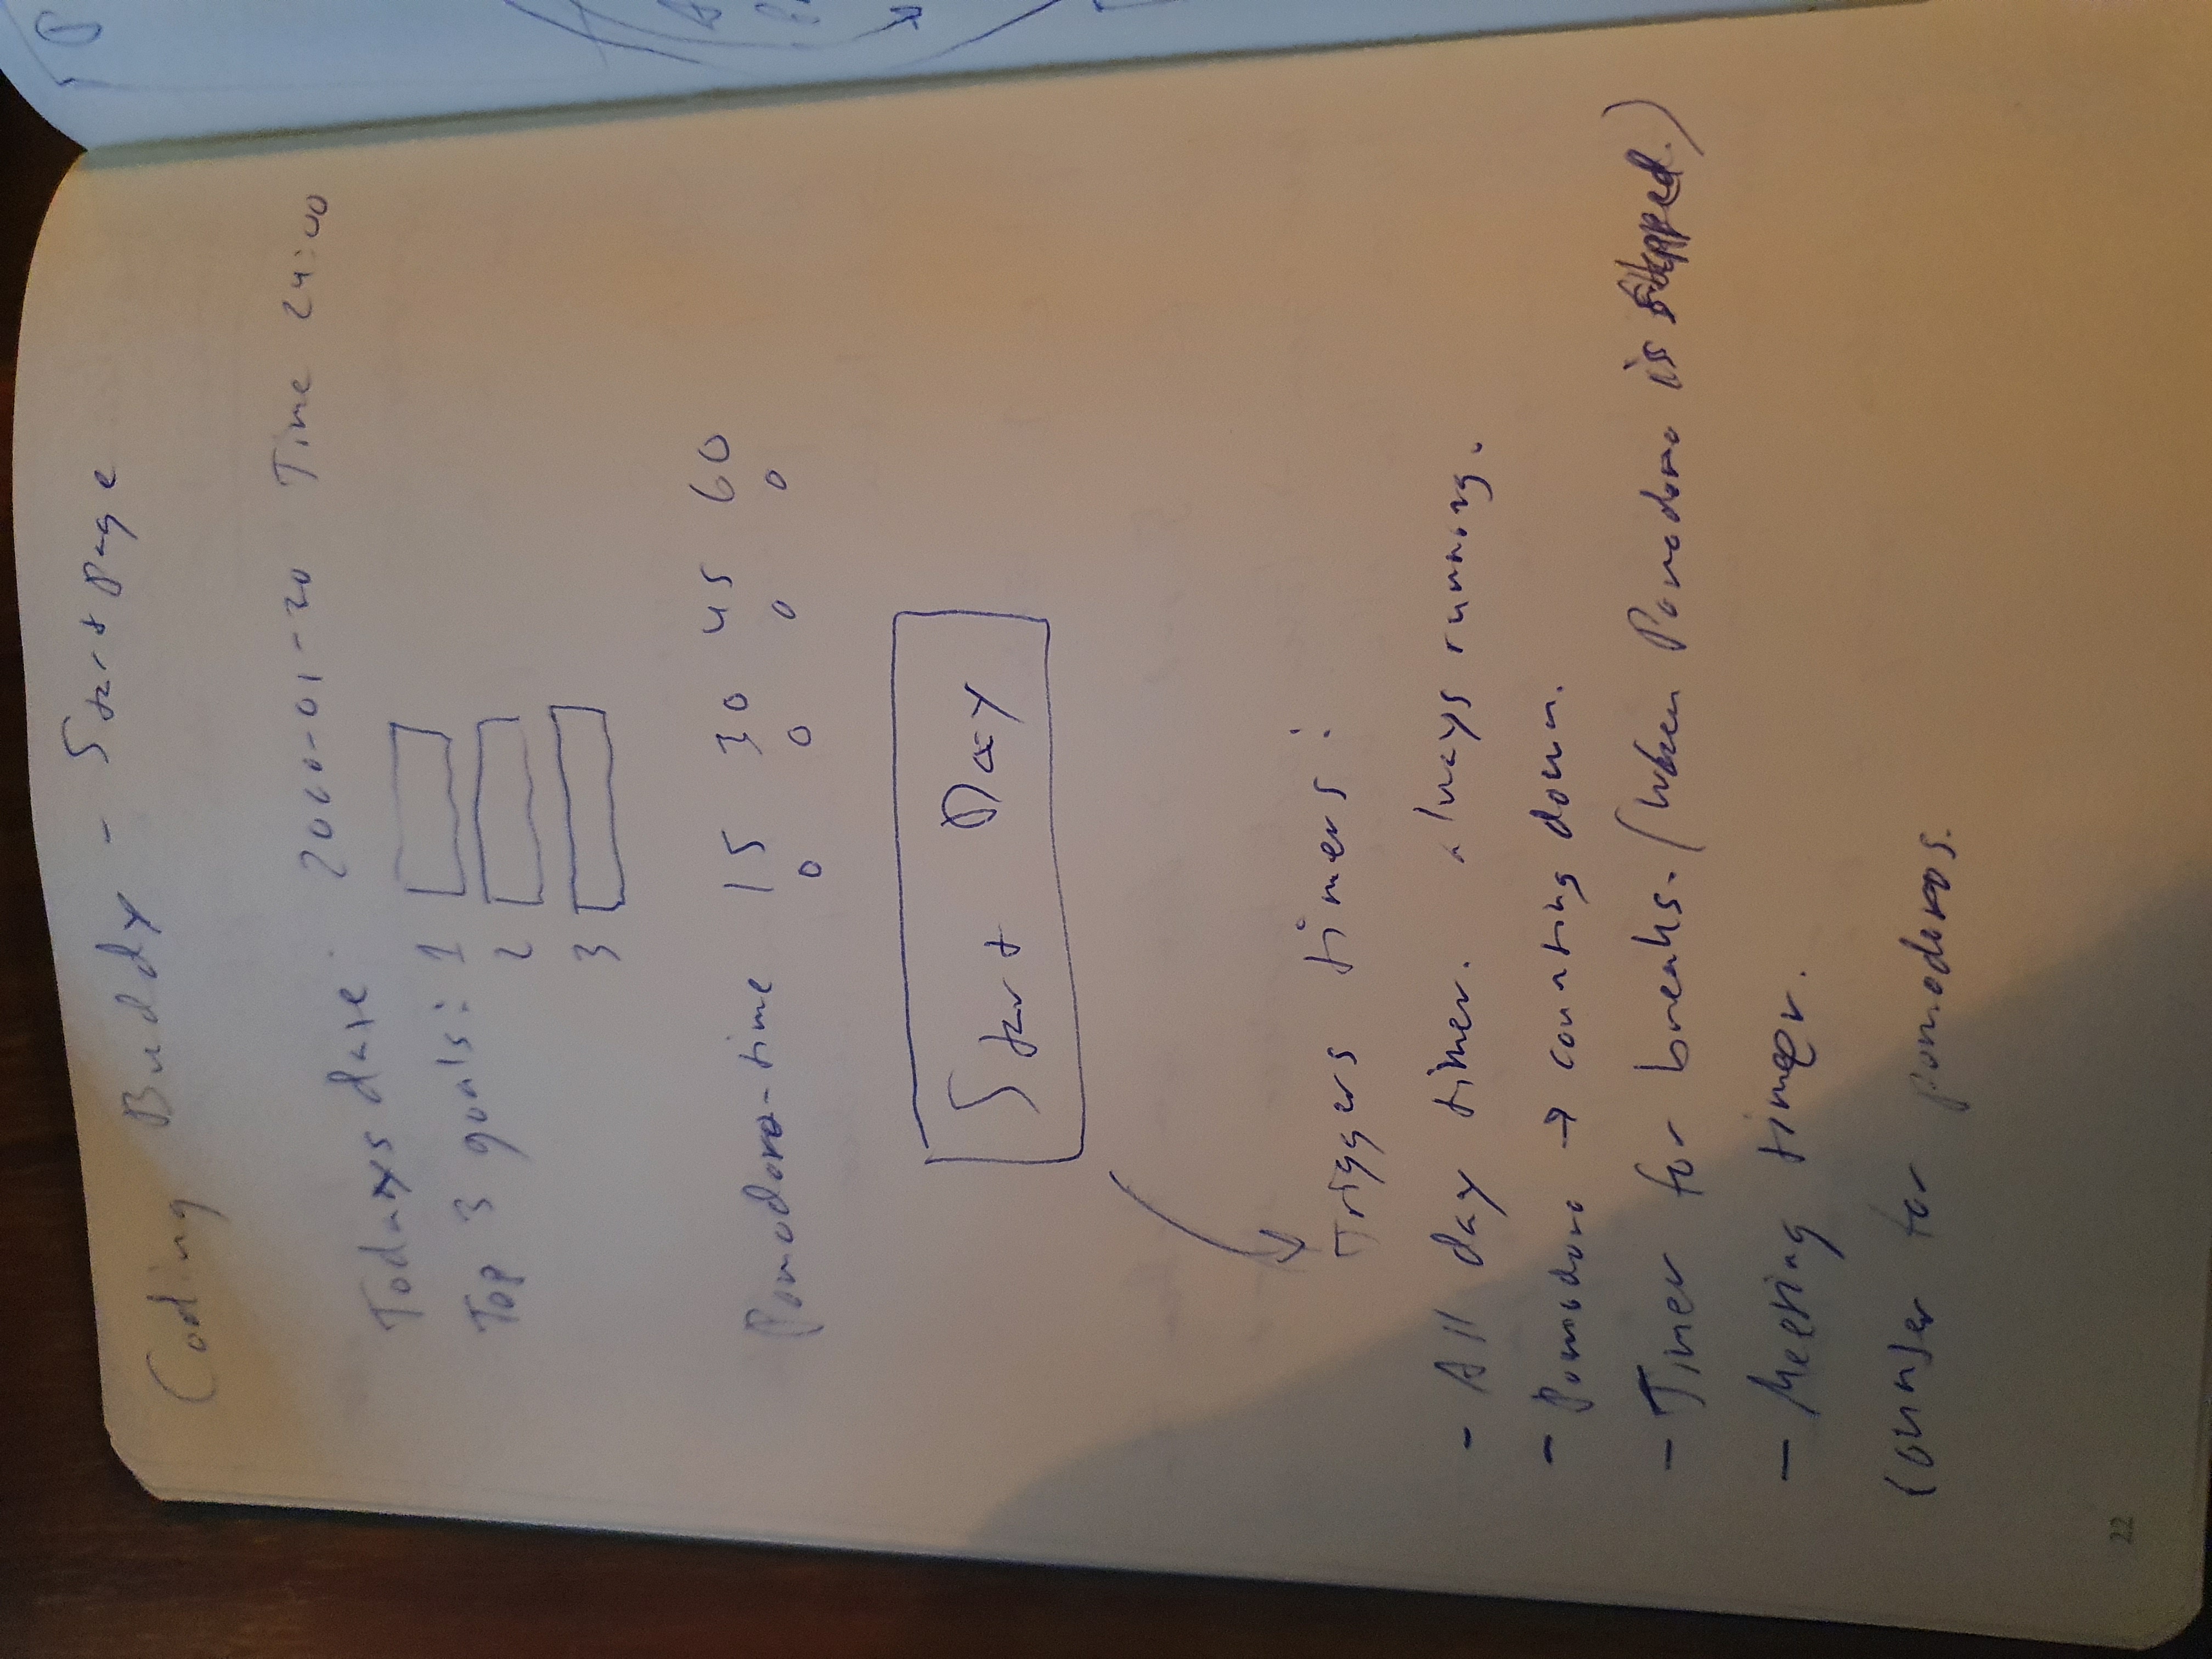 Coding Buddy - Start page
Todays date: 2000-01-30 Time 24:00
Top 3 goals: 1
2
3
Pomodoro-time 15 30 45 60
Start Day
Triggers timers:
- All day timer. always running.
- Pomodoro → counting down.
- Timer for breaks. (When Pomodoro is stopped.)
- Meeting timer.
Counter for pomodoros.
22